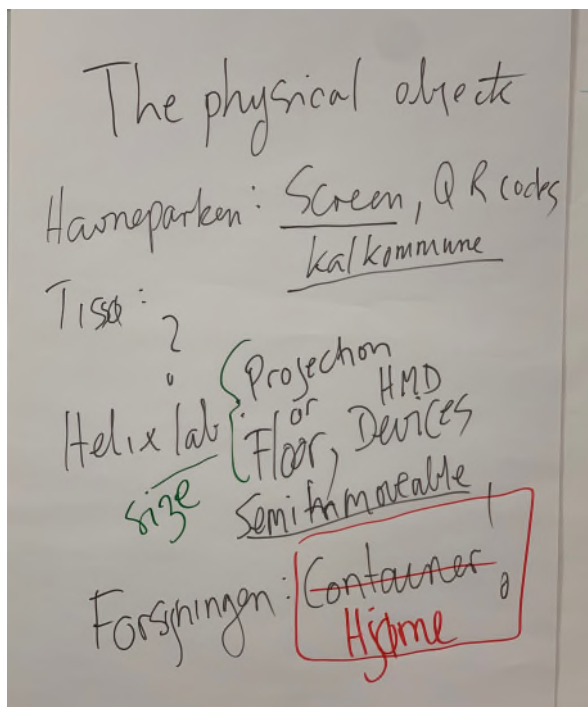 The physical object
Havneparken: Screen, QR codes
kalkommune
Tissø:
?
Helix lab { Projection
or HMD
Floor, Devices
size
Semi Immoveable
Forsyningen: Container,
Hjørne